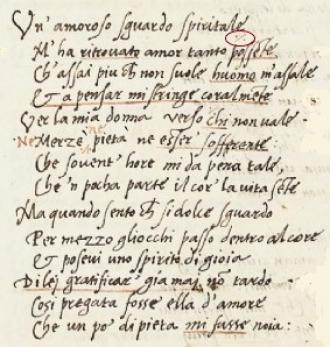 Un' amoroso sguardo spiritale
M'ha ritrovato amor tanto possẽte
Ch'assai piu cħ non suole huomo m'assale
Et a pensar mi stringe coralmẽte
Ver la mia donna verso chi non vale
Ne Merzè ne pietà ne esser sofferente:
Che sovent' hore mi da pena tale,
Che 'n pocha parte il cor la vita sẽte
Ma quando sento cħ si dolce sguardo
Per mezzo gliocchi passo dentro al core
Et posevi uno spirito di gioia
Di lei gratificar gia mai nõ tardo
Cosi pregata fosse ella d'amore
Che un po' di pieta mi fusse noia: